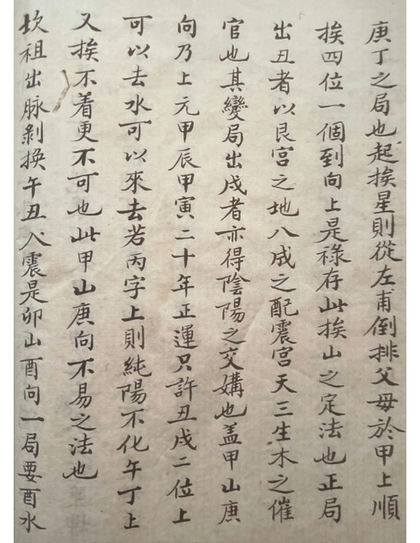 庚丁之局也起挨星則從左甫倒排父母於甲上順
挨四位一個到向上是祿存此挨山之定法也正局
出丑者以艮宮之地八成之配震宮天三生木之催
官也其變局出戍者亦得陰陽之交媾也盖甲山庚
向乃上元甲辰甲寅二十年正運只許丑戍二位上
可以去水可以來去若丙字上則純陽不化午丁上
又挨不着更不可也此甲山庚向不易之法也
坎祖出脉剝換午丑入震是卯山酉向一局要酉水